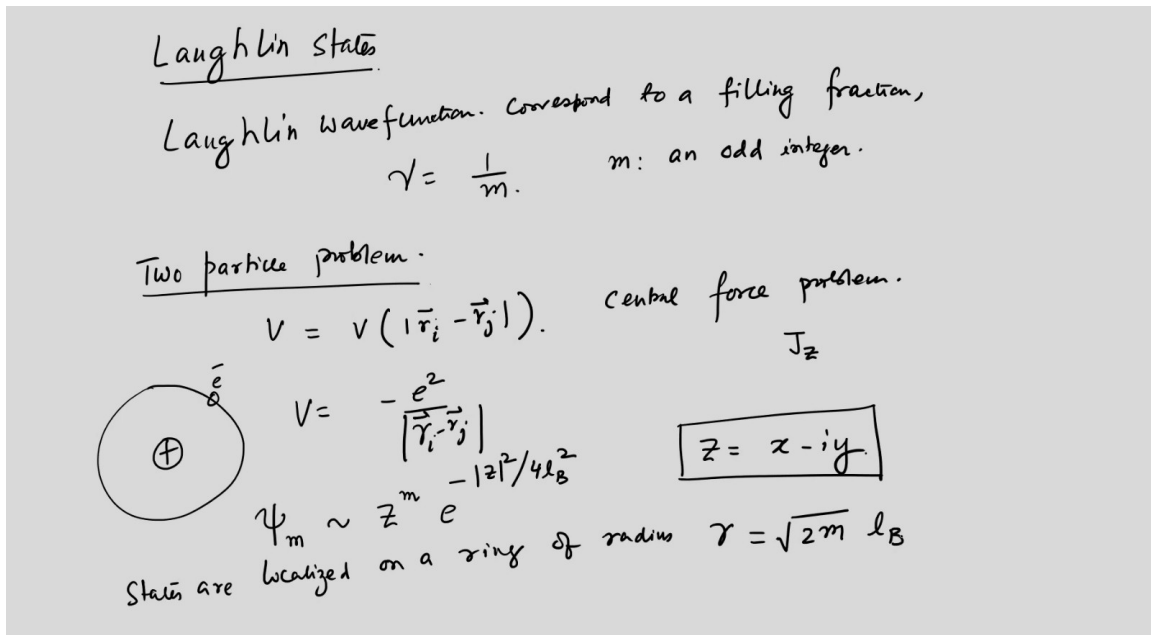 Laughlin states
Laughlin wavefunction. Correspond to a filling fraction,
ν = 1/m. m: an odd integer.
Two particle problem.
V = V(|r⃗_i - r⃗_j|). Central force problem.
J_z
e⁻
V = - e²/|r⃗_i - r⃗_j|
+
z = x - iy
ψ_m ~ z^m e^{-|z|²/4l_B²}
States are localized on a ring of radius r = √(2m) l_B